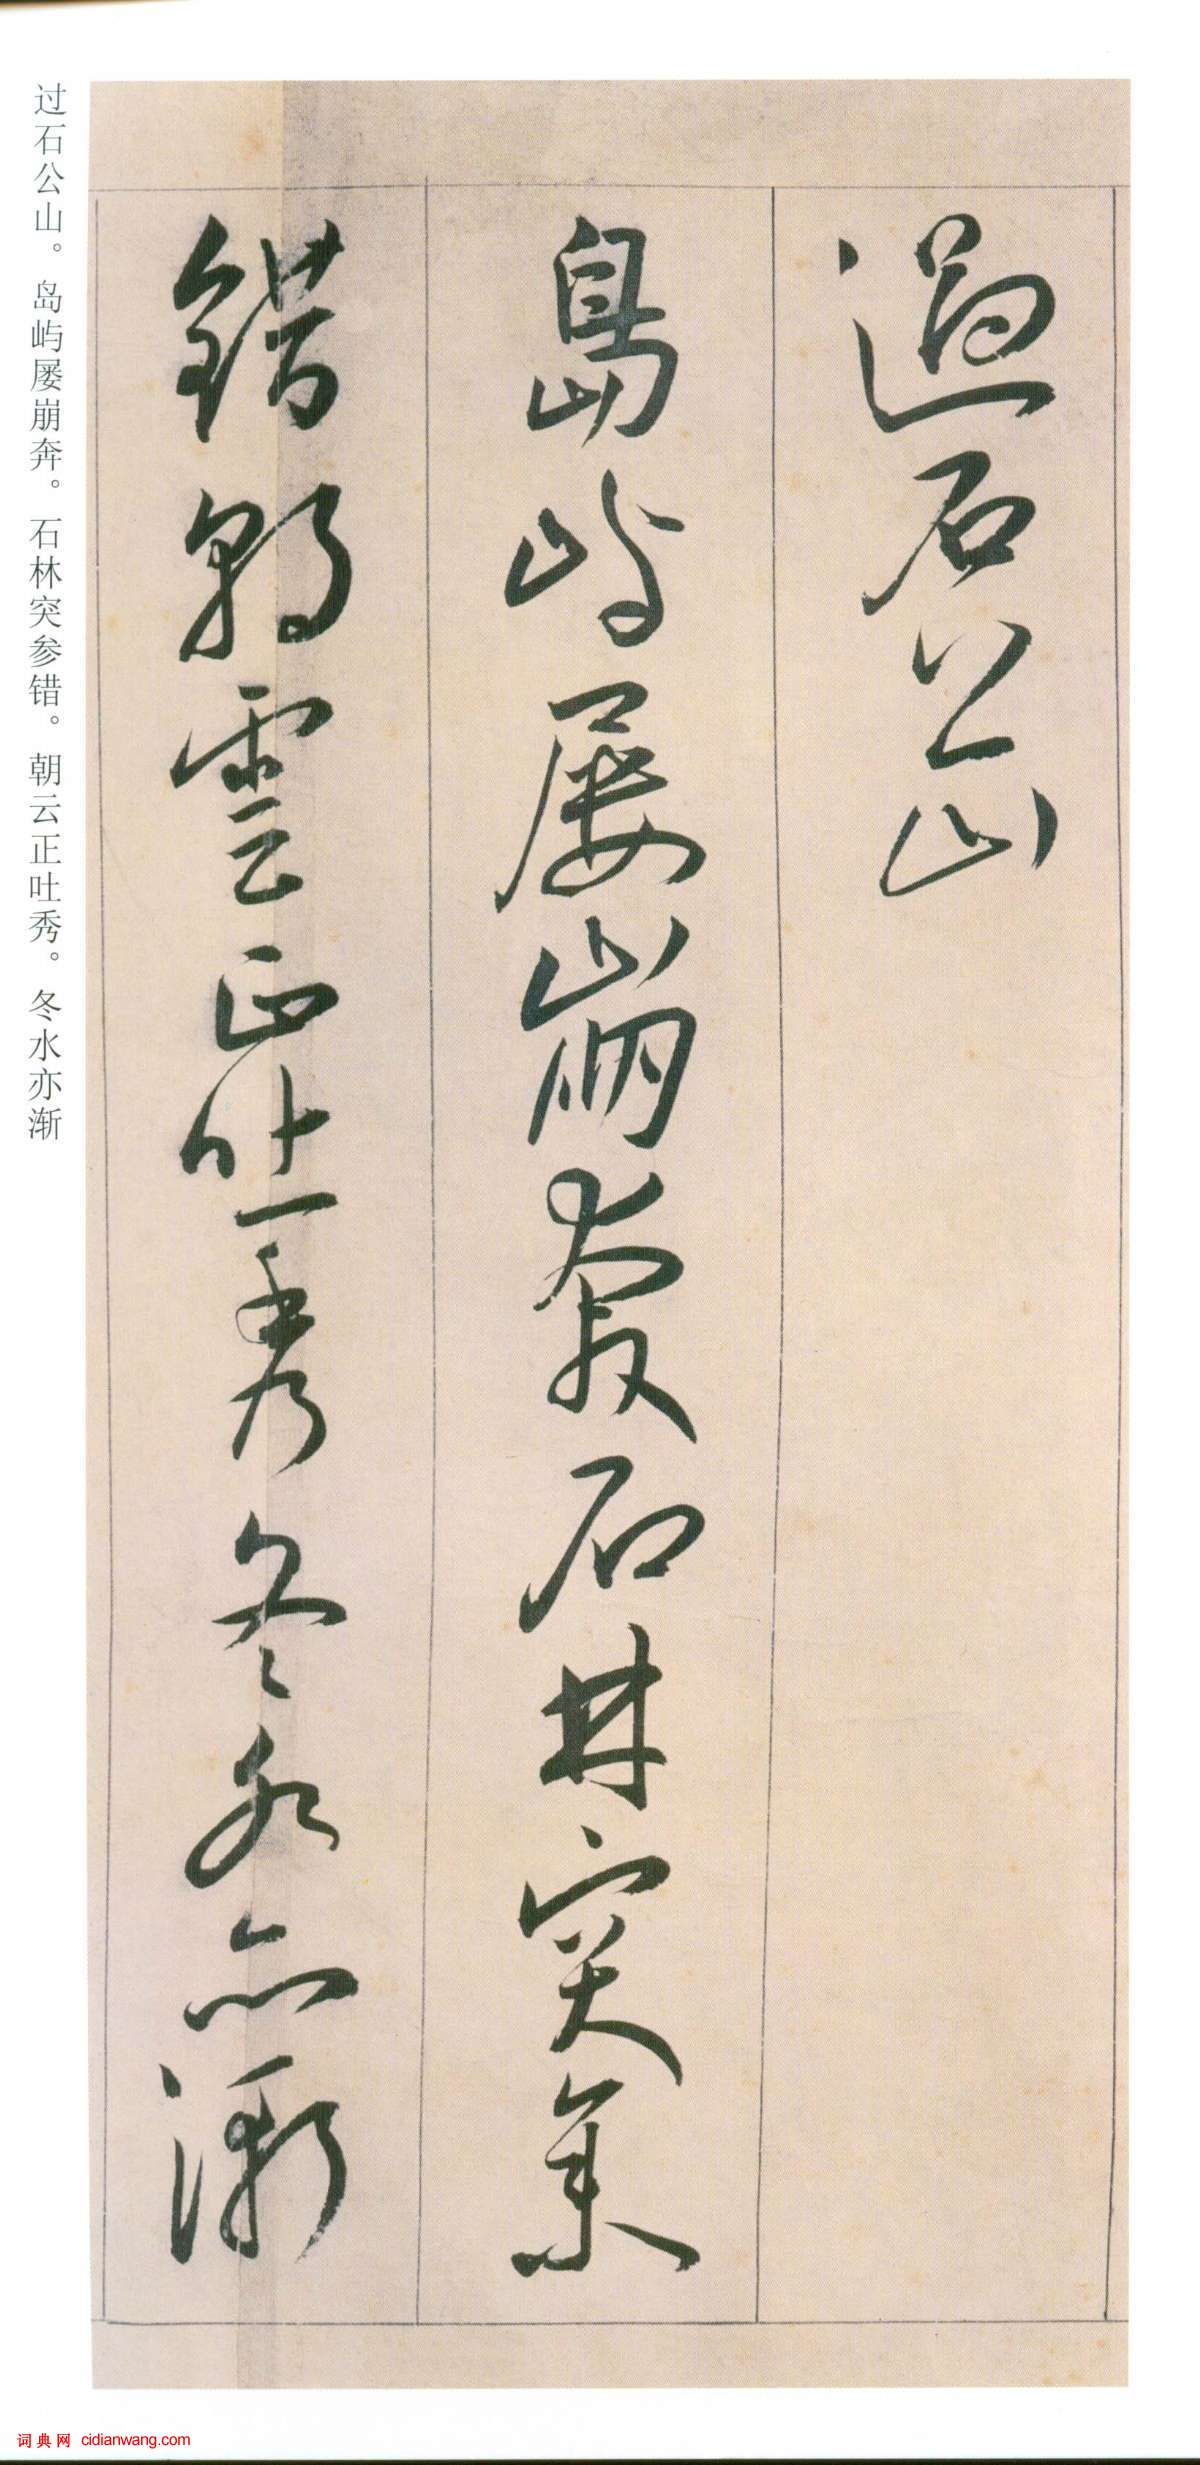 過石公山
島嶼屢崩奔石林突參
錯朝雲正吐秀冬水亦漸
过石公山。岛屿屡崩奔。石林突参错。朝云正吐秀。冬水亦渐
词典网 cidianwang.com